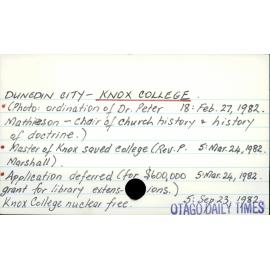 DUNEDIN CITY - KNOX COLLEGE.
• (Photo: ordination of Dr. Peter 18: Feb. 27, 1982.
Mathieson - Chair of church history & history
of doctrine.)
• Master of Knox saved college (Rev. P. 5: Mar. 24, 1982.
Marshall).
• Application deferred (for $600,000 5: Mar. 24, 1982.
grant for library extensions.)
Knox College nuclear free. 5: Sep 23, 1982
OTAGO DAILY TIMES